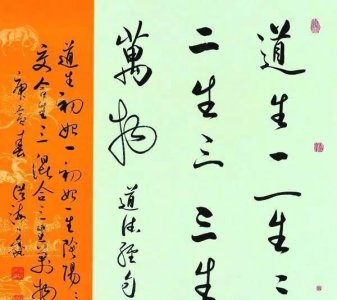 道生一一生二
二生三三生
萬物
道德經句
道生初始一初始一生陰陽二
交合生三混合三生万物
庚寅春